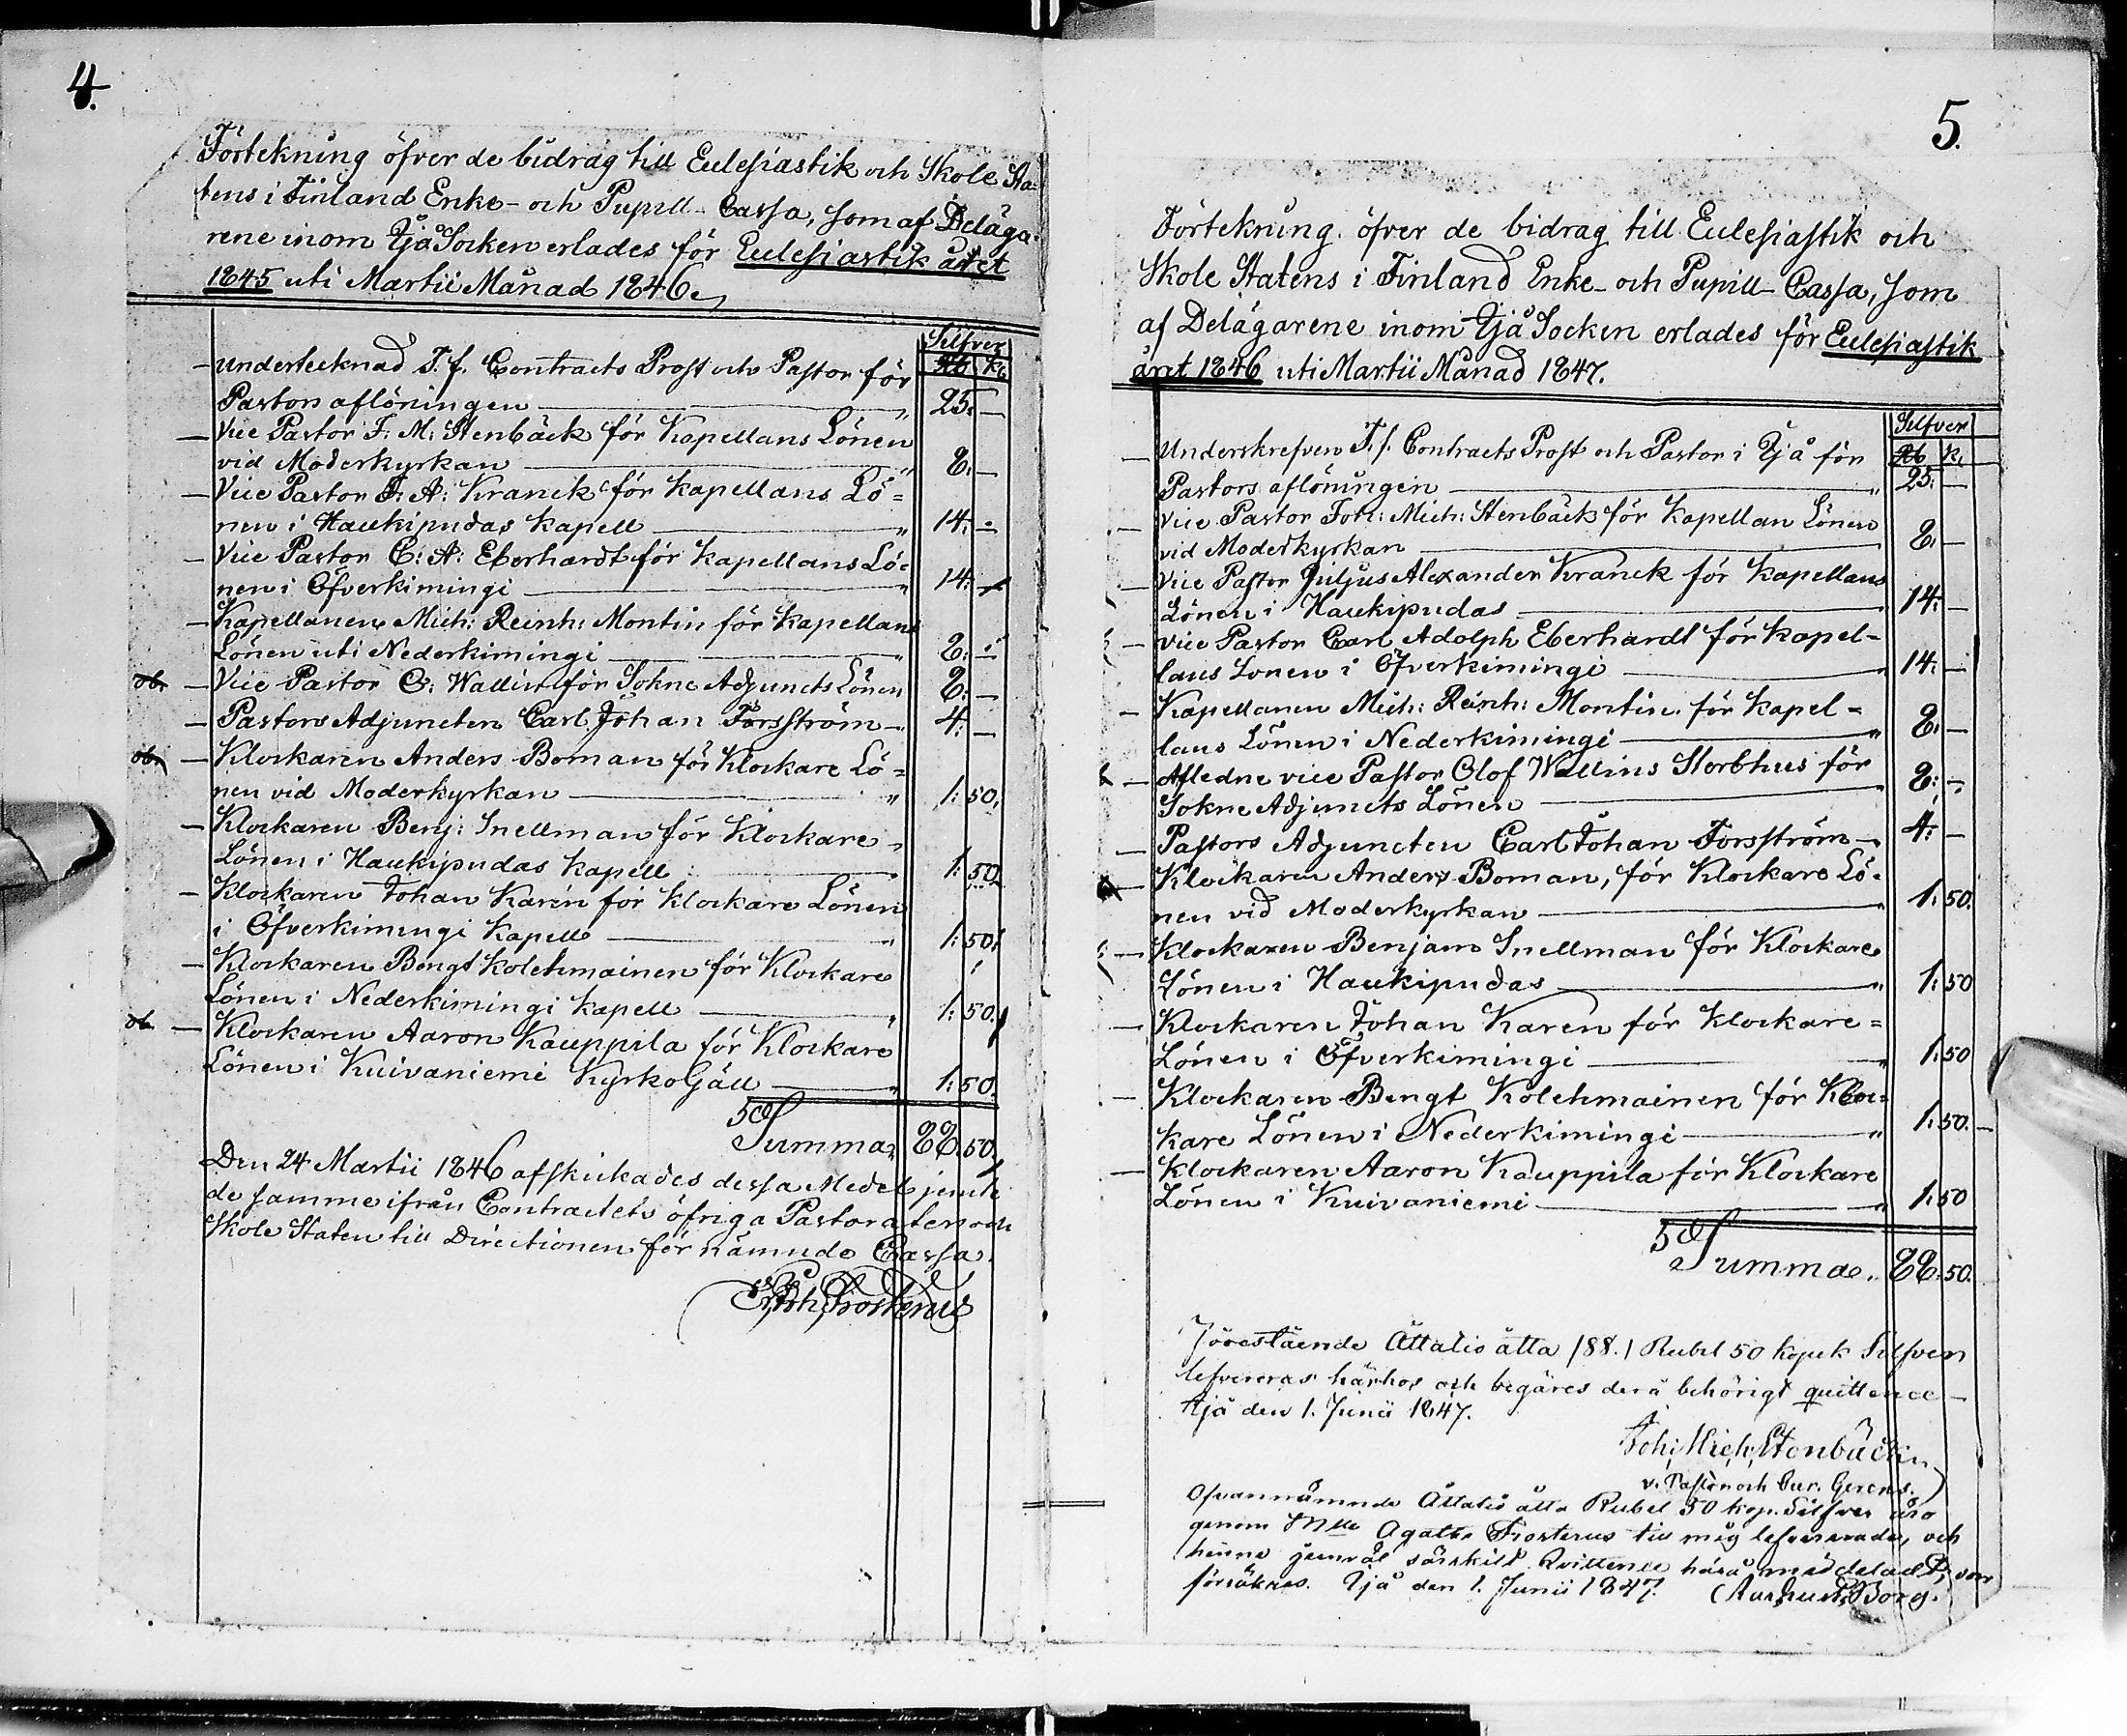 4.
Förtekning öfver de bidrag till Ecclesiastik och Skole Sta-
tens i Finland Enke- och Pupill-Cassa, som af Deläga-
rene inom Ijå Socken erlades för Ecclesiastik året
1845 uti Martii Månad 1846.
Silfver
Rb K.
— Undertecknad T. f. Contracts Prost och Pastor för
Pastors aflöningen — " 25. —
— Vice Pastor J: M: Stenbäck för Kapellans Lönen
vid Moderkyrkan — " 8. —
— Vice Pastor J: A: Kranck för Kapellans Lö=
nen i Haukipudas Kapell — " 14: —
— Vice Pastor C: A: Eberhardt för Kapellans Lö=
nen i Öfverkimingi — " 14: —
— Kapellanen Mich: Reinh: Montin för Kapellans
Lönen uti Nederkimingi — " 8: —
ob. — Vice Pastor O: Wallin för Sokne Adjuncts Lönen 8: —
— Pastors Adjuncten Carl Johan Forsström — " 4: —
ob. — Klockaren Anders Boman för Klockare Lö=
nen vid Moderkyrkan — " 1: 50.
— Klockaren Benj: Snellman för Klockare
Lönen i Haukipudas Kapell — " 1: 50.
— Klockaren Johan Karén för Klockare Lönen
i Öfverkimingi Kapell — " 1: 50.
— Klockaren Bengt Kolehmainen för Klockare
Lönen i Nederkimingi Kapell — " 1: 50.
ob. — Klockaren Aaron Kauppila för Klockare
Lönen i Kuivaniemi Kyrko Gäll — " 1: 50.
Summa 88. 50.
Den 24 Martii 1846 afskickades dessa Medel jemte
de samme ifrån Contractets öfriga Pastorater och
Skole Staten till Directionen för nämnde Cassa.
Frosterus
5.
Förtekning öfver de bidrag till Ecclesiastik och
Skole Statens i Finland Enke- och Pupill-Cassa, som
af Delägarene inom Ijå Socken erlades för Ecclesiastik
året 1846 uti Martii Månad 1847.
Silfver
Rb K.
— Underskrefven T. f. Contracts Prost och Pastor i Ijå för
Pastors aflöningen — " 25. —
— Vice Pastor Joh: Mich: Stenbäck för Kapellan Lönen
vid Moderkyrkan — 8. —
— Vice Pastor Julius Alexander Kranck för Kapellans
Lönen i Haukipudas — " 14: —
— Vice Pastor Carl Adolph Eberhardt för Kapel-
lans Lönen i Öfverkimingi — " 14: —
— Kapellanen Mich: Reinh: Montin för Kapel=
lans Lönen i Nederkimingi — " 8. —
— Afledne vice Pastor Olof Wallins Sterbhus för
Sokne Adjuncts Lönen — " 8: —
— Pastors Adjuncten Carl Johan Forsström — 4: —
— Klockaren Anders Boman, för Klockare Lö-
nen vid Moderkyrkan — " 1: 50.
— Klockaren Benjam Snellman för Klockare
Lönen i Haukipudas — " 1: 50
— Klockaren Johan Karén för Klockare=
Lönen i Öfverkimingi — " 1: 50
— Klockaren Bengt Kolehmainen för Kloc=
kare Lönen i Nederkimingi — " 1: 50. —
— Klockaren Aaron Kauppila för Klockare
Lönen i Kuivaniemi — " 1: 50
Summa. 88. 50.
Förestående Åttatio åtta /88./ Rubel 50 kopek Silfver
lefvereras härhos och begäres derå behörigt quittence —
Ijå den 1. Junii 1847.
Joh: Mich: Stenbäck
v. Pastor och Cur. Gerens.
Ofvannämnde Åttatio åtta Rubel 50 kop. Silfver äro
genom Mlle Agatha Frosterus till mig lefvererade, och
henne jemväl särskilt Qvittence härå meddeladt, som
försäkras. Ijå den 1. Junii 1847. Borg.